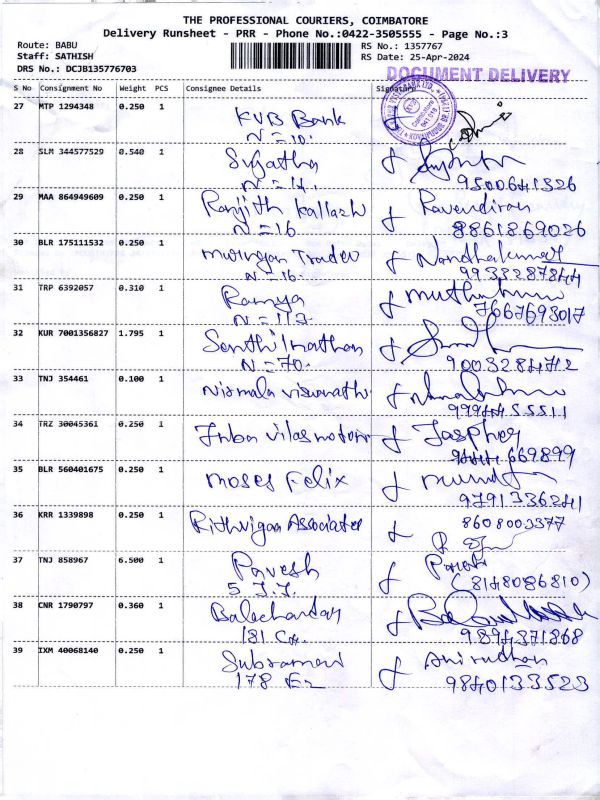 THE PROFESSIONAL COURIERS, COIMBATORE
Delivery Runsheet - PRR - Phone No.:0422-3505555 - Page No.:3
Route: BABU
RS No.: 1357767
Staff: SATHISH
RS Date: 25-Apr-2024
DRS No.: DCJB135776703
DOCUMENT DELIVERY
S No Consignment No Weight PCS Consignee Details Signature
27 MTP 1294348 0.250 1
KVB Bank
N = 10.
28 SLM 344577529 0.540 1
Sujatha
9500641326
29 MAA 864949609 0.250 1
Ranjith Kallazh Ravendiran
N = 16 8861869026
30 BLR 175111532 0.250 1
Murugan Trader Nandhakumar
N = 16. 9933287844
31 TRP 6392057 0.310 1
Ramya Muthukumar
N = 117. 7667693017
32 KUR 7001356827 1.795 1
Senthilnathan
N = 70. 9003284712
33 TNJ 354461 0.100 1
Nirmala viswanath
9994455511
34 TRZ 30045361 0.250 1
Inba vilas motors Jaspher
669899
35 BLR 560401675 0.250 1
Moses Felix
9791336241
36 KRR 1339898 0.250 1
Rithvigaa Associates 8608003377
37 TNJ 858967 6.500 1
Pavesh
5 J.J. (8148086810)
38 CNR 1790797 0.360 1
Balachandar
181 9894371868
39 IXM 40068140 0.250 1
Subramani Anirudhan
178 9840133523